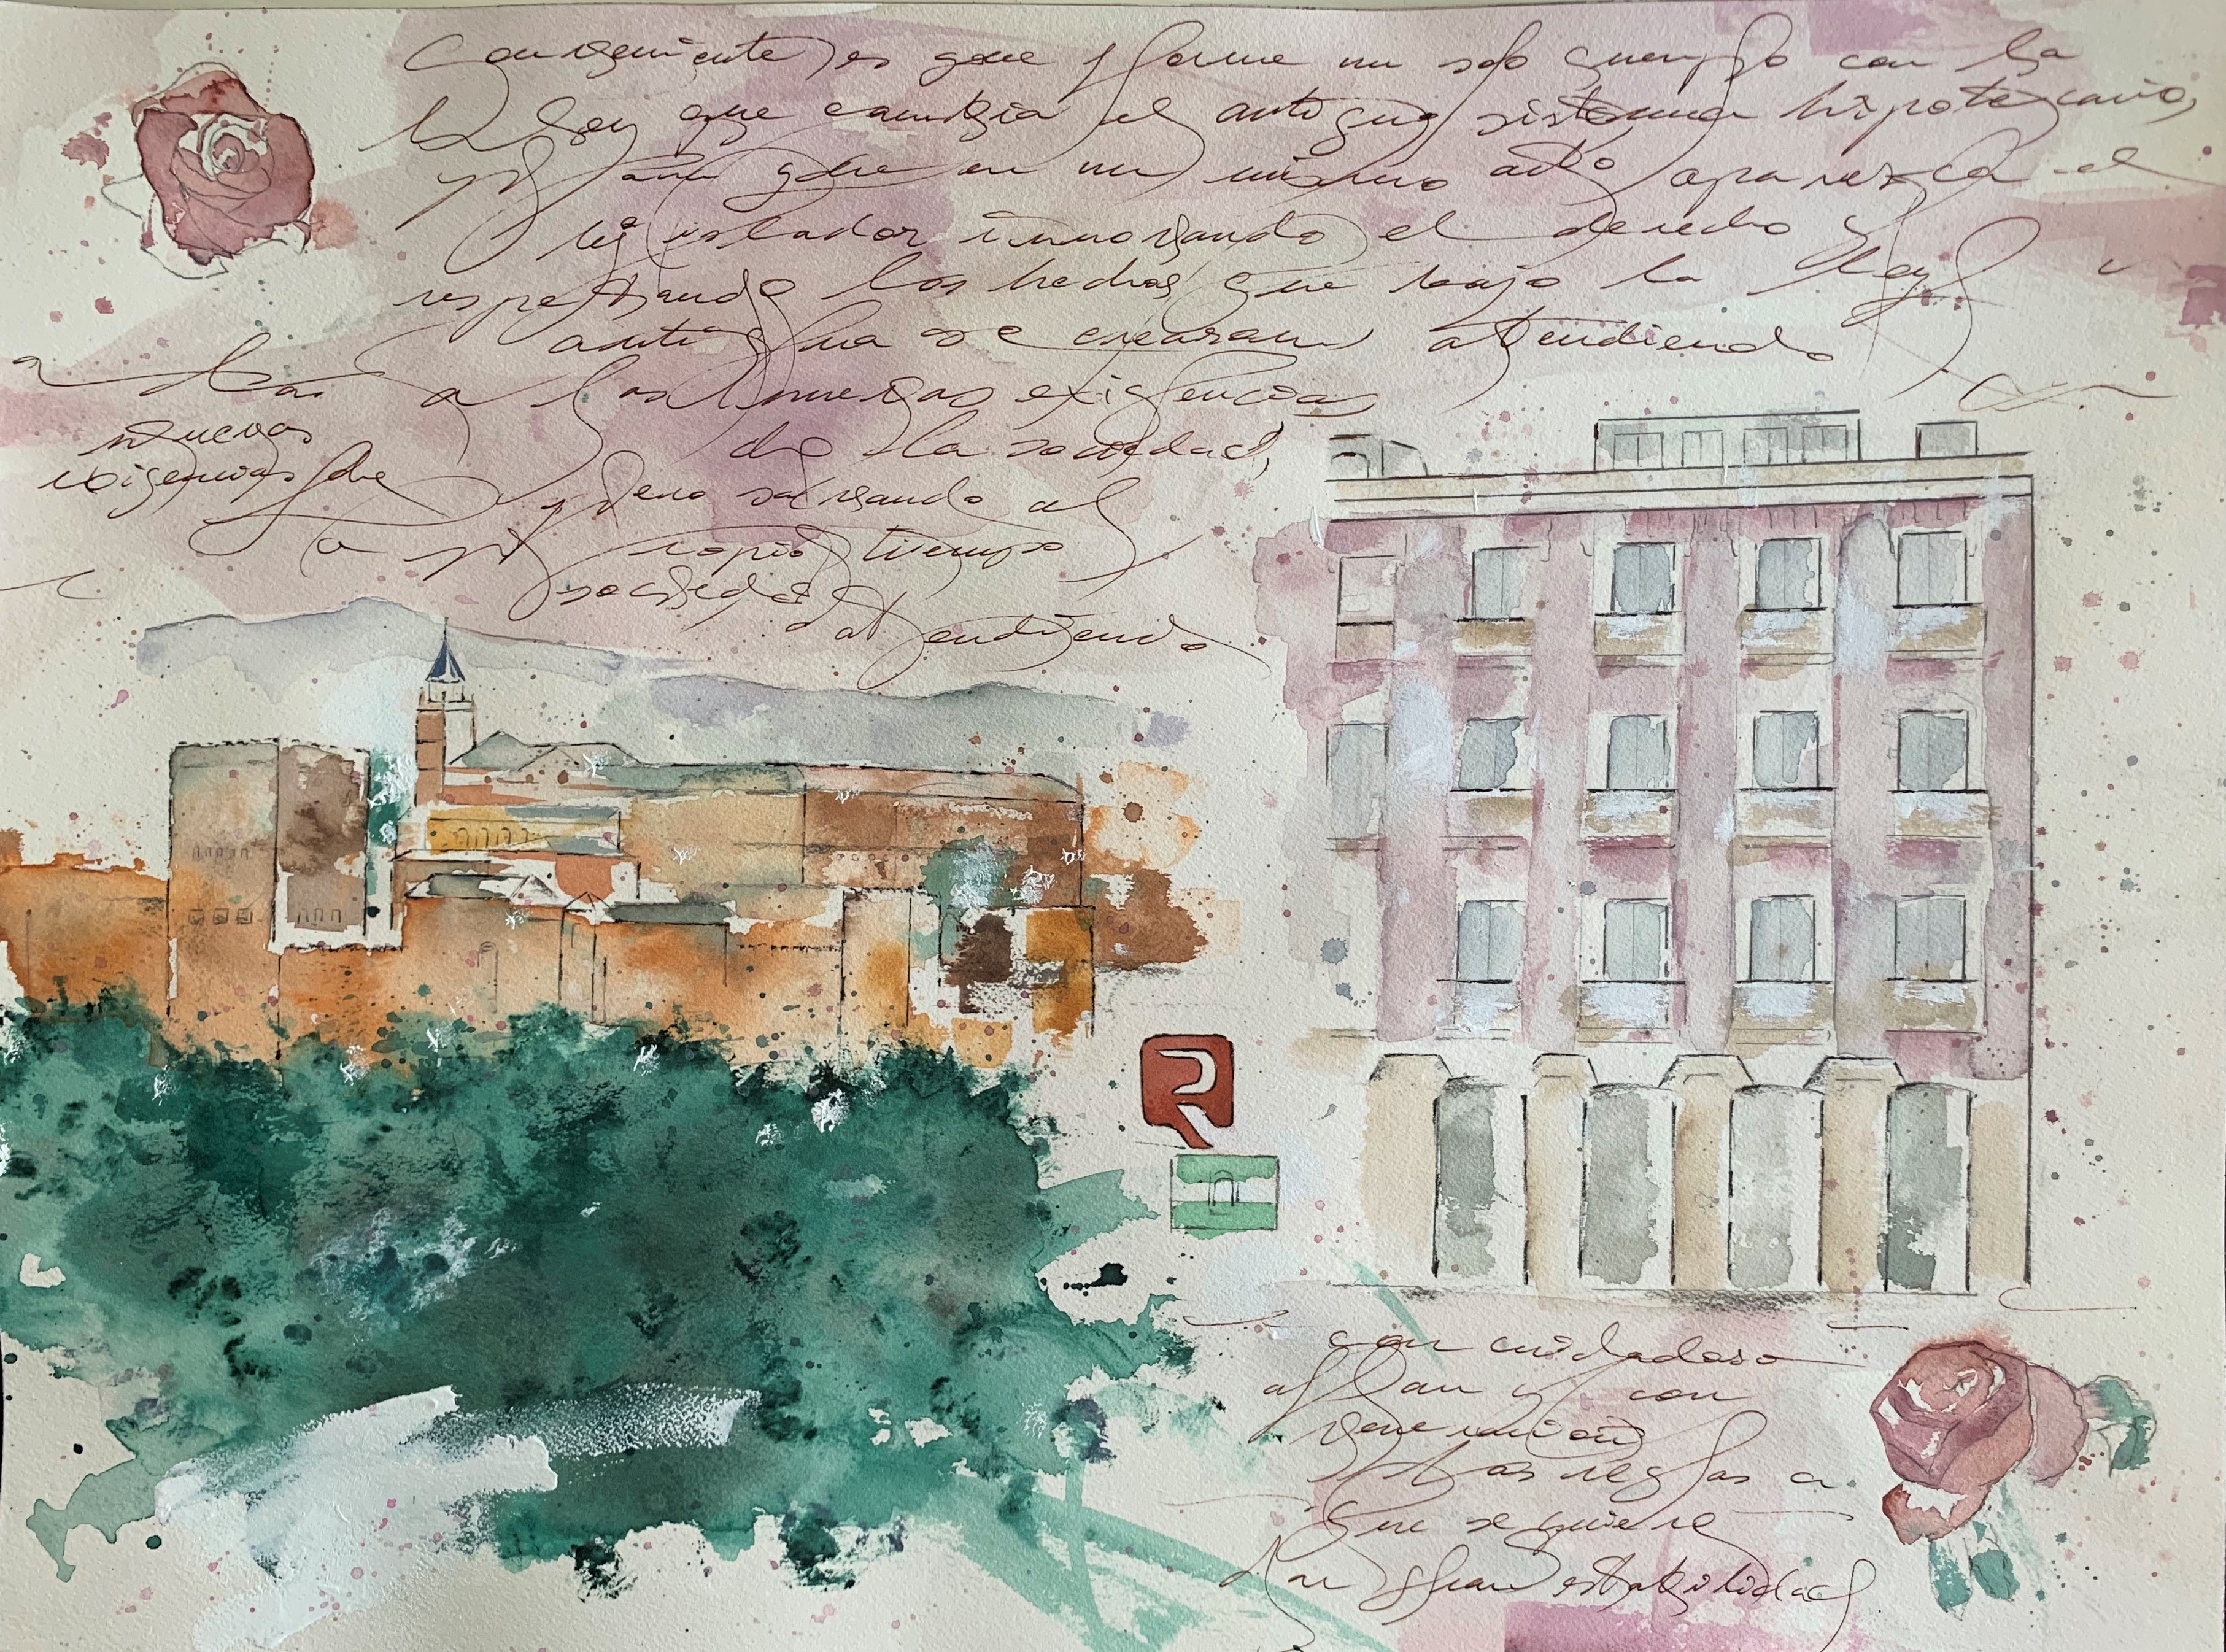 Conveniente, es que forme un solo cuerpo con la
la ley que cambia el antiguo sistema hipotecario,
para que en un mismo acto aparezca el
legislador innovando el derecho y
respetando los hechos que bajo la ley
antigua se crearon atendiendo
a las nuevas exigencias
de la sociedad,
pero salvando al
propio tiempo
sociedad
atendiendo
a las
nuevas
exigencias de
R
con cuidadoso
afan y con
veneracion
las reglas a
que se quiere
dar gran estabilidad